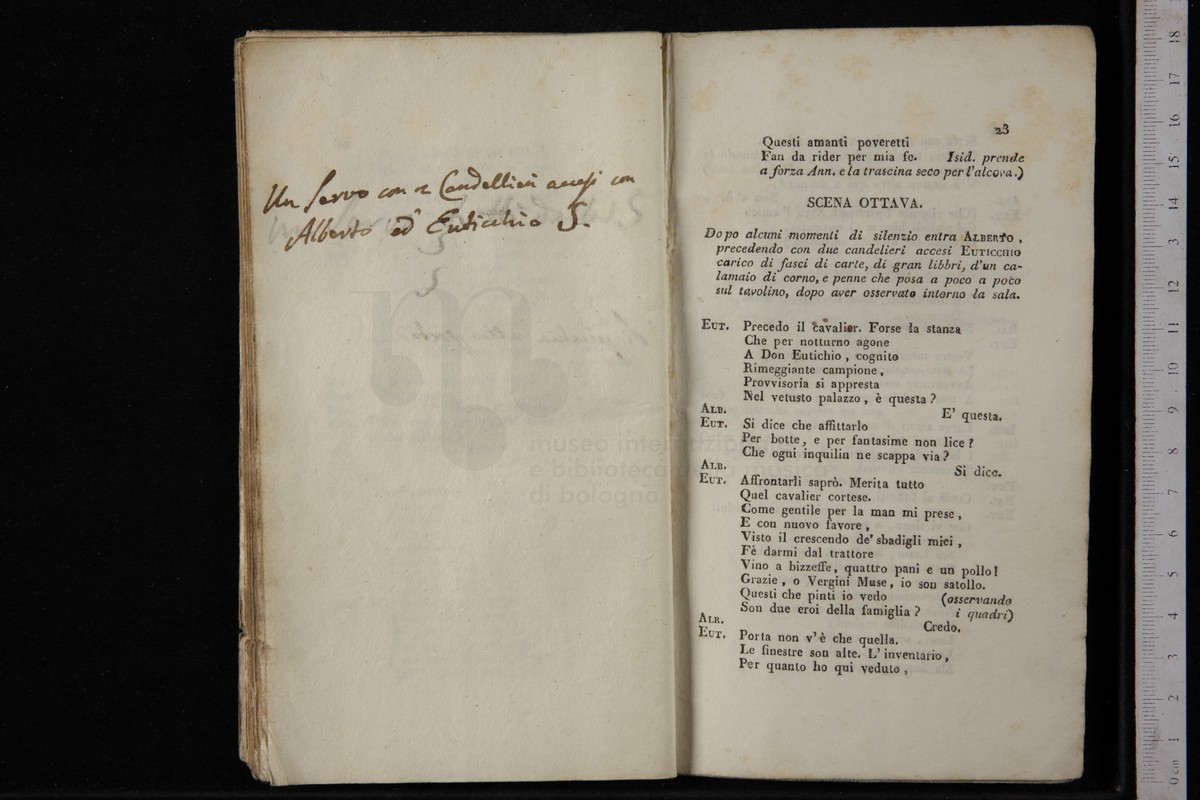 Un Servo con 2 Candellieri accesi con
Alberto ed Euticchio S.
museo internazionale
e biblioteca della musica
di bologna
23
Questi amanti poveretti
Fan da rider per mia fe. Isid. prende
a forza Ann. e la trascina seco per l'alcova.)
SCENA OTTAVA.
Dopo alcuni momenti di silenzio entra ALBERTO ,
precedendo con due candelieri accesi EUTICCHIO
carico di fasci di carte, di gran libbri, d'un ca-
lamaio di corno, e penne che posa a poco a poco
sul tavolino, dopo aver osservato intorno la sala.
EUT. Precedo il cavalier. Forse la stanza
Che per notturno agone
A Don Eutichio , cognito
Rimeggiante campione ,
Provvisoria si appresta
Nel vetusto palazzo , è questa ?
ALB. E' questa.
EUT. Si dice che affittarlo
Per botte, e per fantasime non lice ?
Che ogni inquilin ne scappa via ?
ALB. Si dice.
EUT. Affrontarli saprò. Merita tutto
Quel cavalier cortese.
Come gentile per la man mi prese ,
E con nuovo favore ,
Visto il crescendo de' sbadigli miei ,
Fè darmi dal trattore
Vino a bizzeffe, quattro pani e un pollo!
Grazie , o Vergini Muse , io son satollo.
Questi che pinti io vedo (osservando
Son due eroi della famiglia ? i quadri)
ALB. Credo.
EUT. Porta non v'è che quella.
Le finestre son alte. L'inventario ,
Per quanto ho qui veduto ,
0 cm 1 2 3 4 5 6 7 8 9 10 11 12 13 14 15 16 17 18